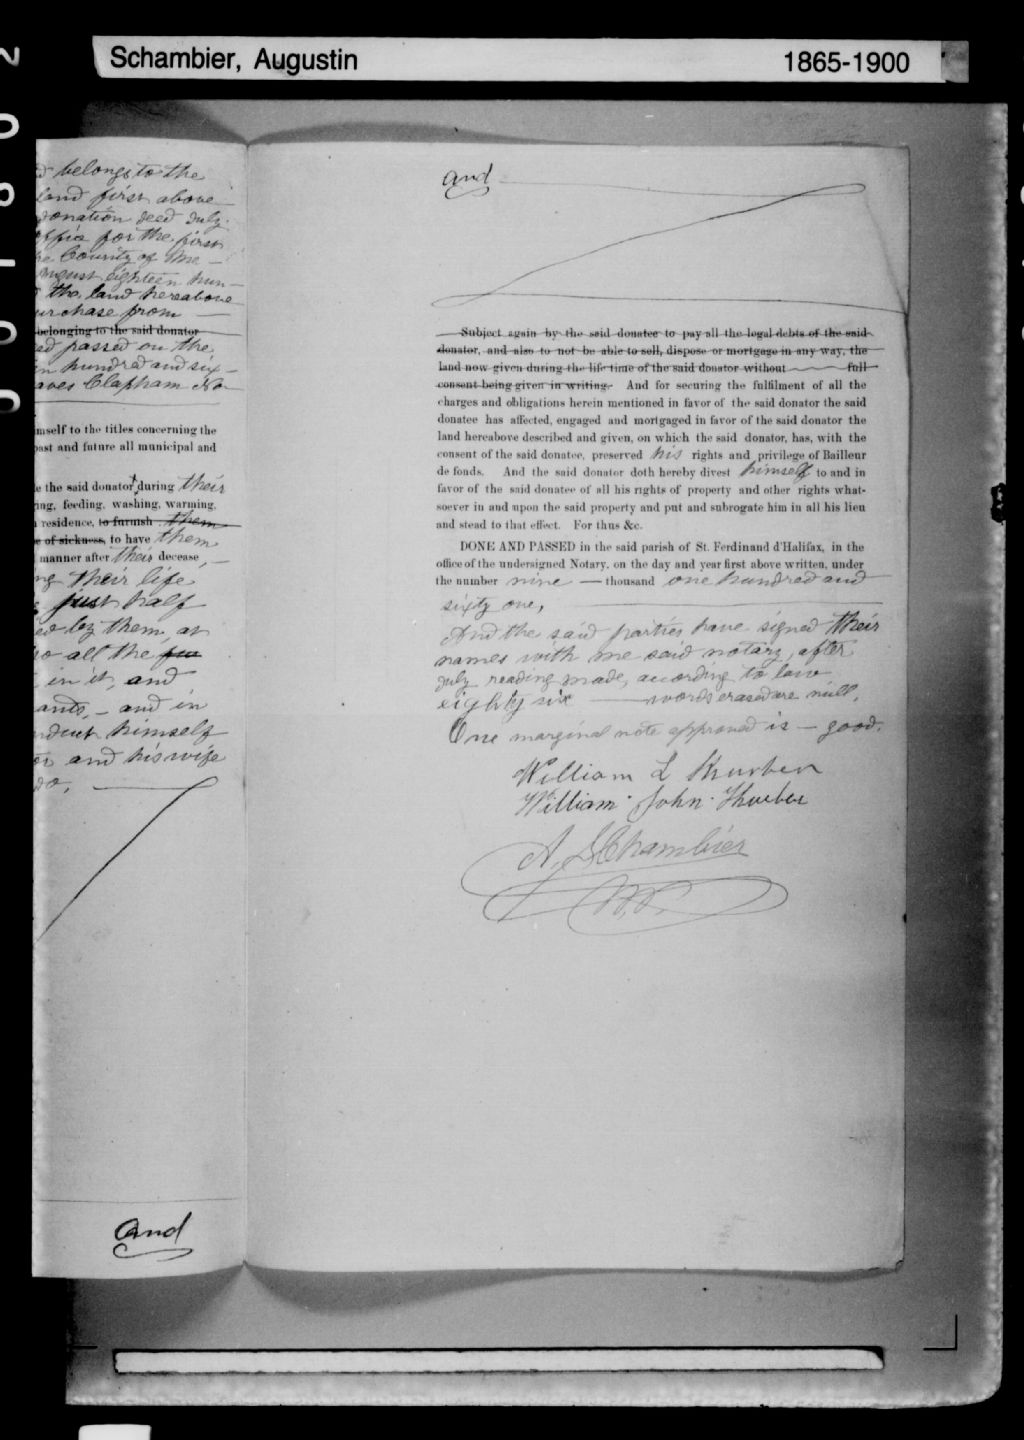 Schambier, Augustin
1865-1900
belongs to the
land first above
donation deed July
office for the first
he County of Me-
August eighteen hun-
the land hereabove
urchase from
belonging to the said donator
ed passed on the
n hundred and six-
aves Clapham No-
mself to the titles concerning the
past and future all municipal and
e the said donator during their
ing, feeding, washing, warming,
residence, to furnish them
e of sickness, to have them
manner after their decease,
ng their life
just half
ed by them, at
so all the
in it, and
ants, - and in
himself
or and his wife
do.
and
and
Subject again by the said donatee to pay all the legal debts of the said
donator, and also to not be able to sell, dispose or mortgage in any way, the
land now given during the life time of the said donator without full
consent being given in writing. And for securing the fulfilment of all the
charges and obligations herein mentioned in favor of the said donator the said
donatee has affected, engaged and mortgaged in favor of the said donator the
land hereabove described and given, on which the said donator, has, with the
consent of the said donatee, preserved his rights and privilege of Bailleur
de fonds. And the said donator doth hereby divest himself to and in
favor of the said donatee of all his rights of property and other rights what-
soever in and upon the said property and put and subrogate him in all his lieu
and stead to that effect. For thus &c.
DONE AND PASSED in the said parish of St. Ferdinand d'Halifax, in the
office of the undersigned Notary, on the day and year first above written, under
the number nine — thousand one hundred and
sixty one,
And the said parties have signed their
names with me said notary, after
duly reading made, according to law
eighty six words erased are null.
One marginal note approved is — good.
William L Thurber
William John Thurber
A. SChambier
N.P.